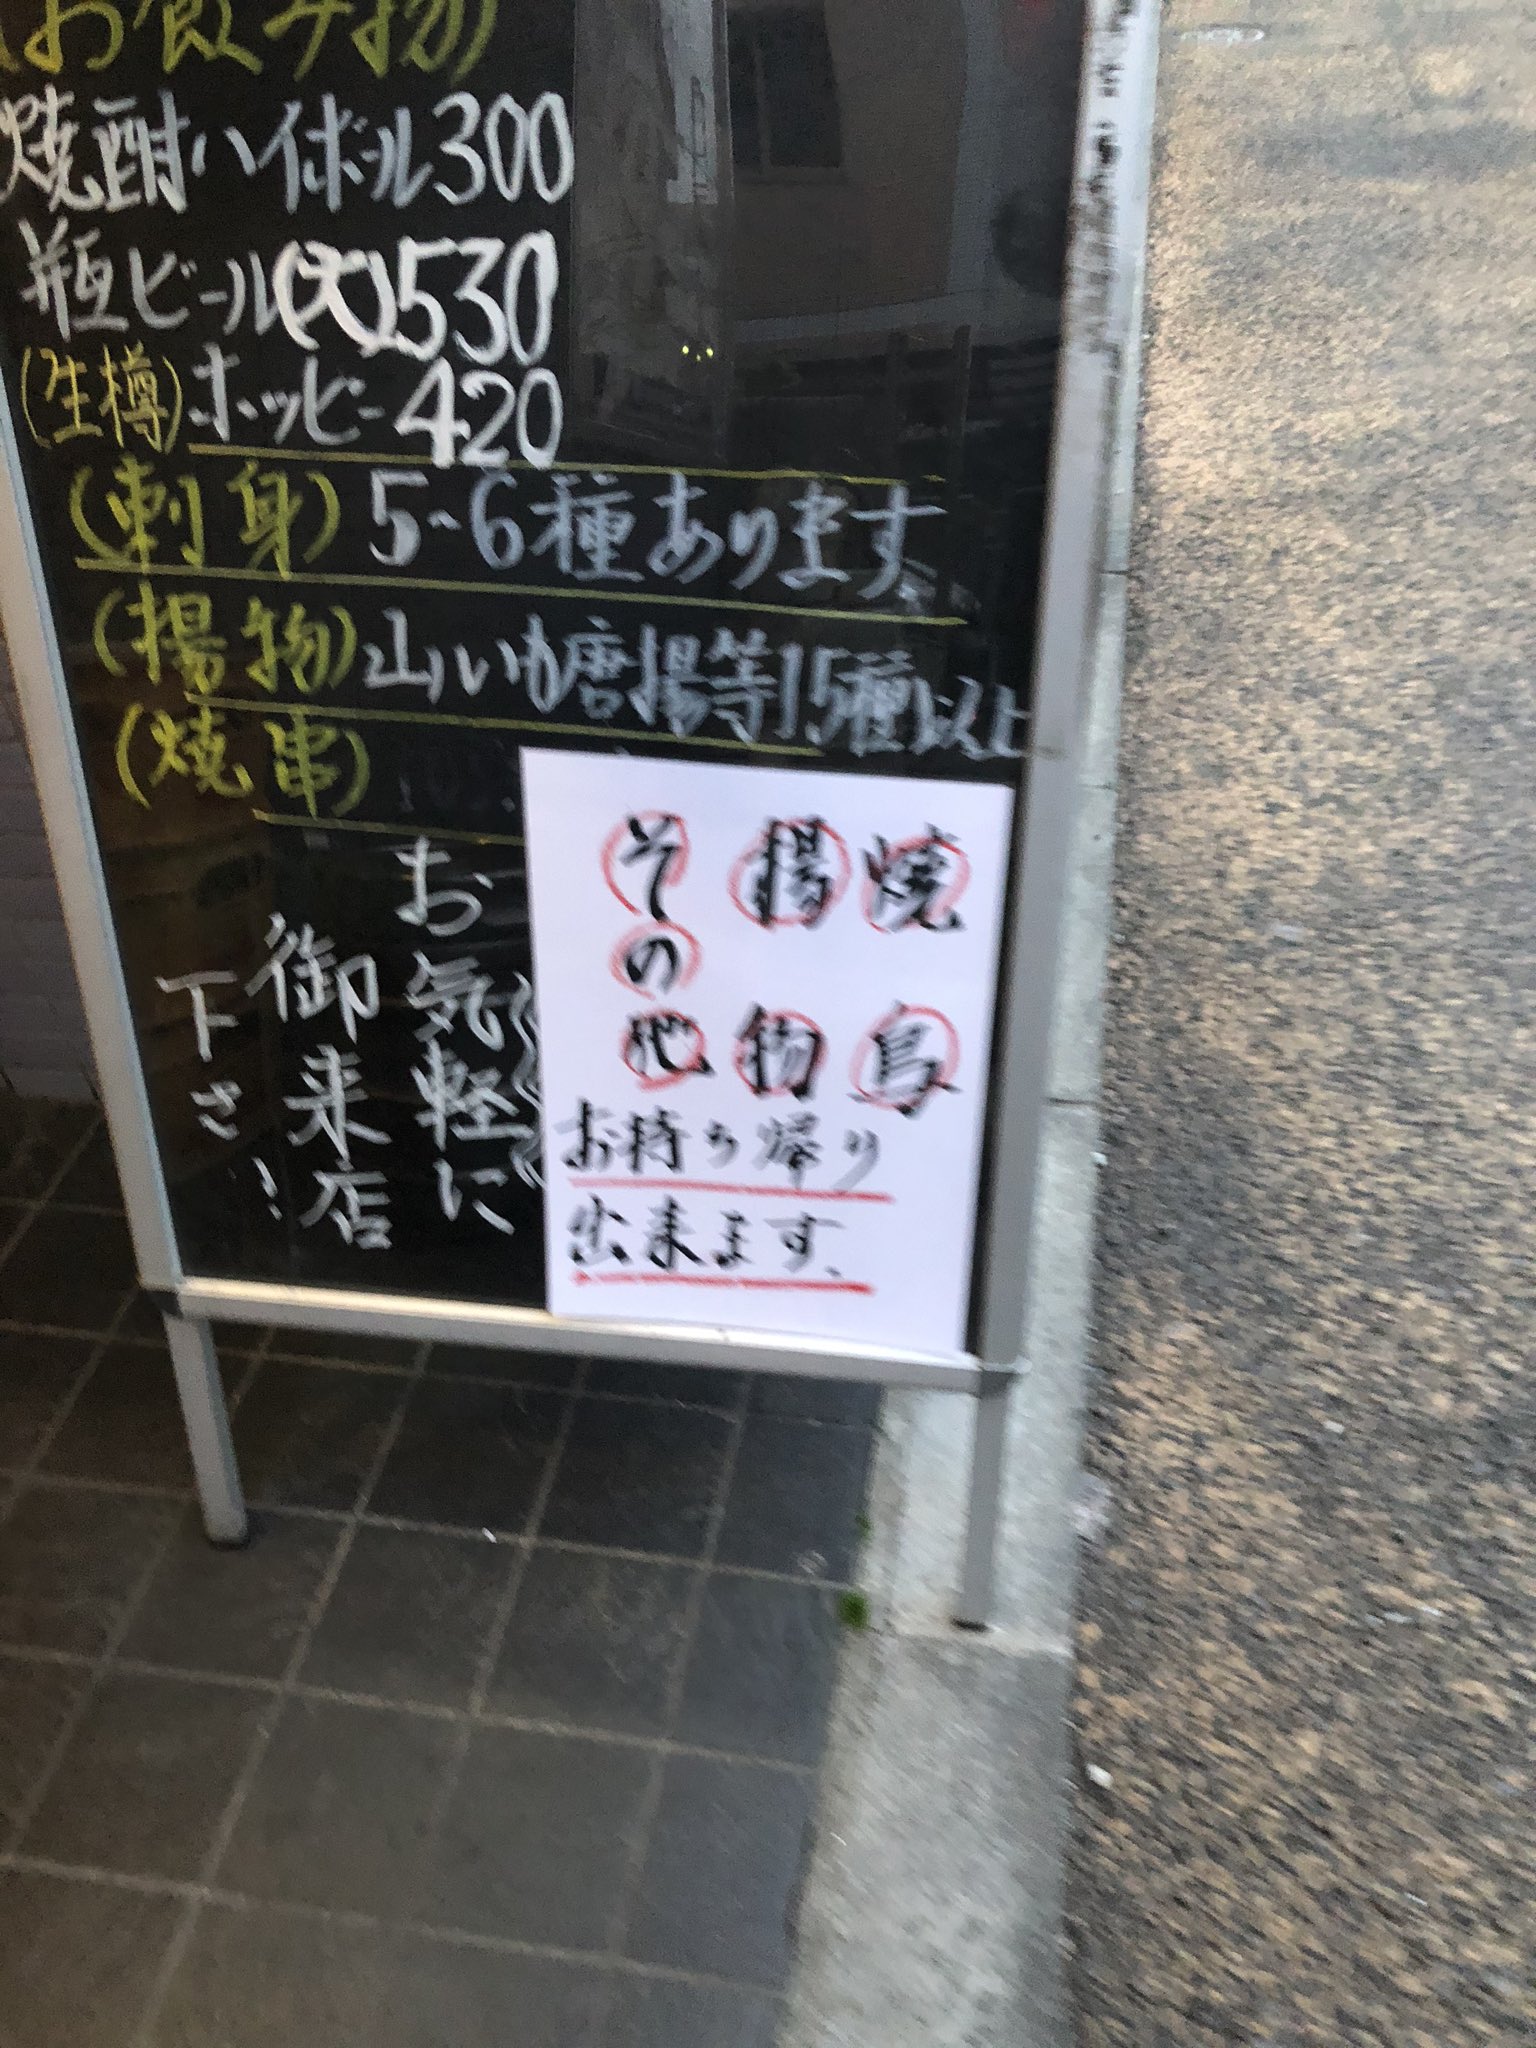 (お飲み物)
焼酎ハイボール300
瓶ビール(大)530
(生樽)ホッピー420
(刺身)5~6種あります
(揚物)山いも唐揚等15種以上
(焼串)
お気軽に
御来店
下さい!
焼鳥
揚物
その他
お持ち帰り
出来ます、